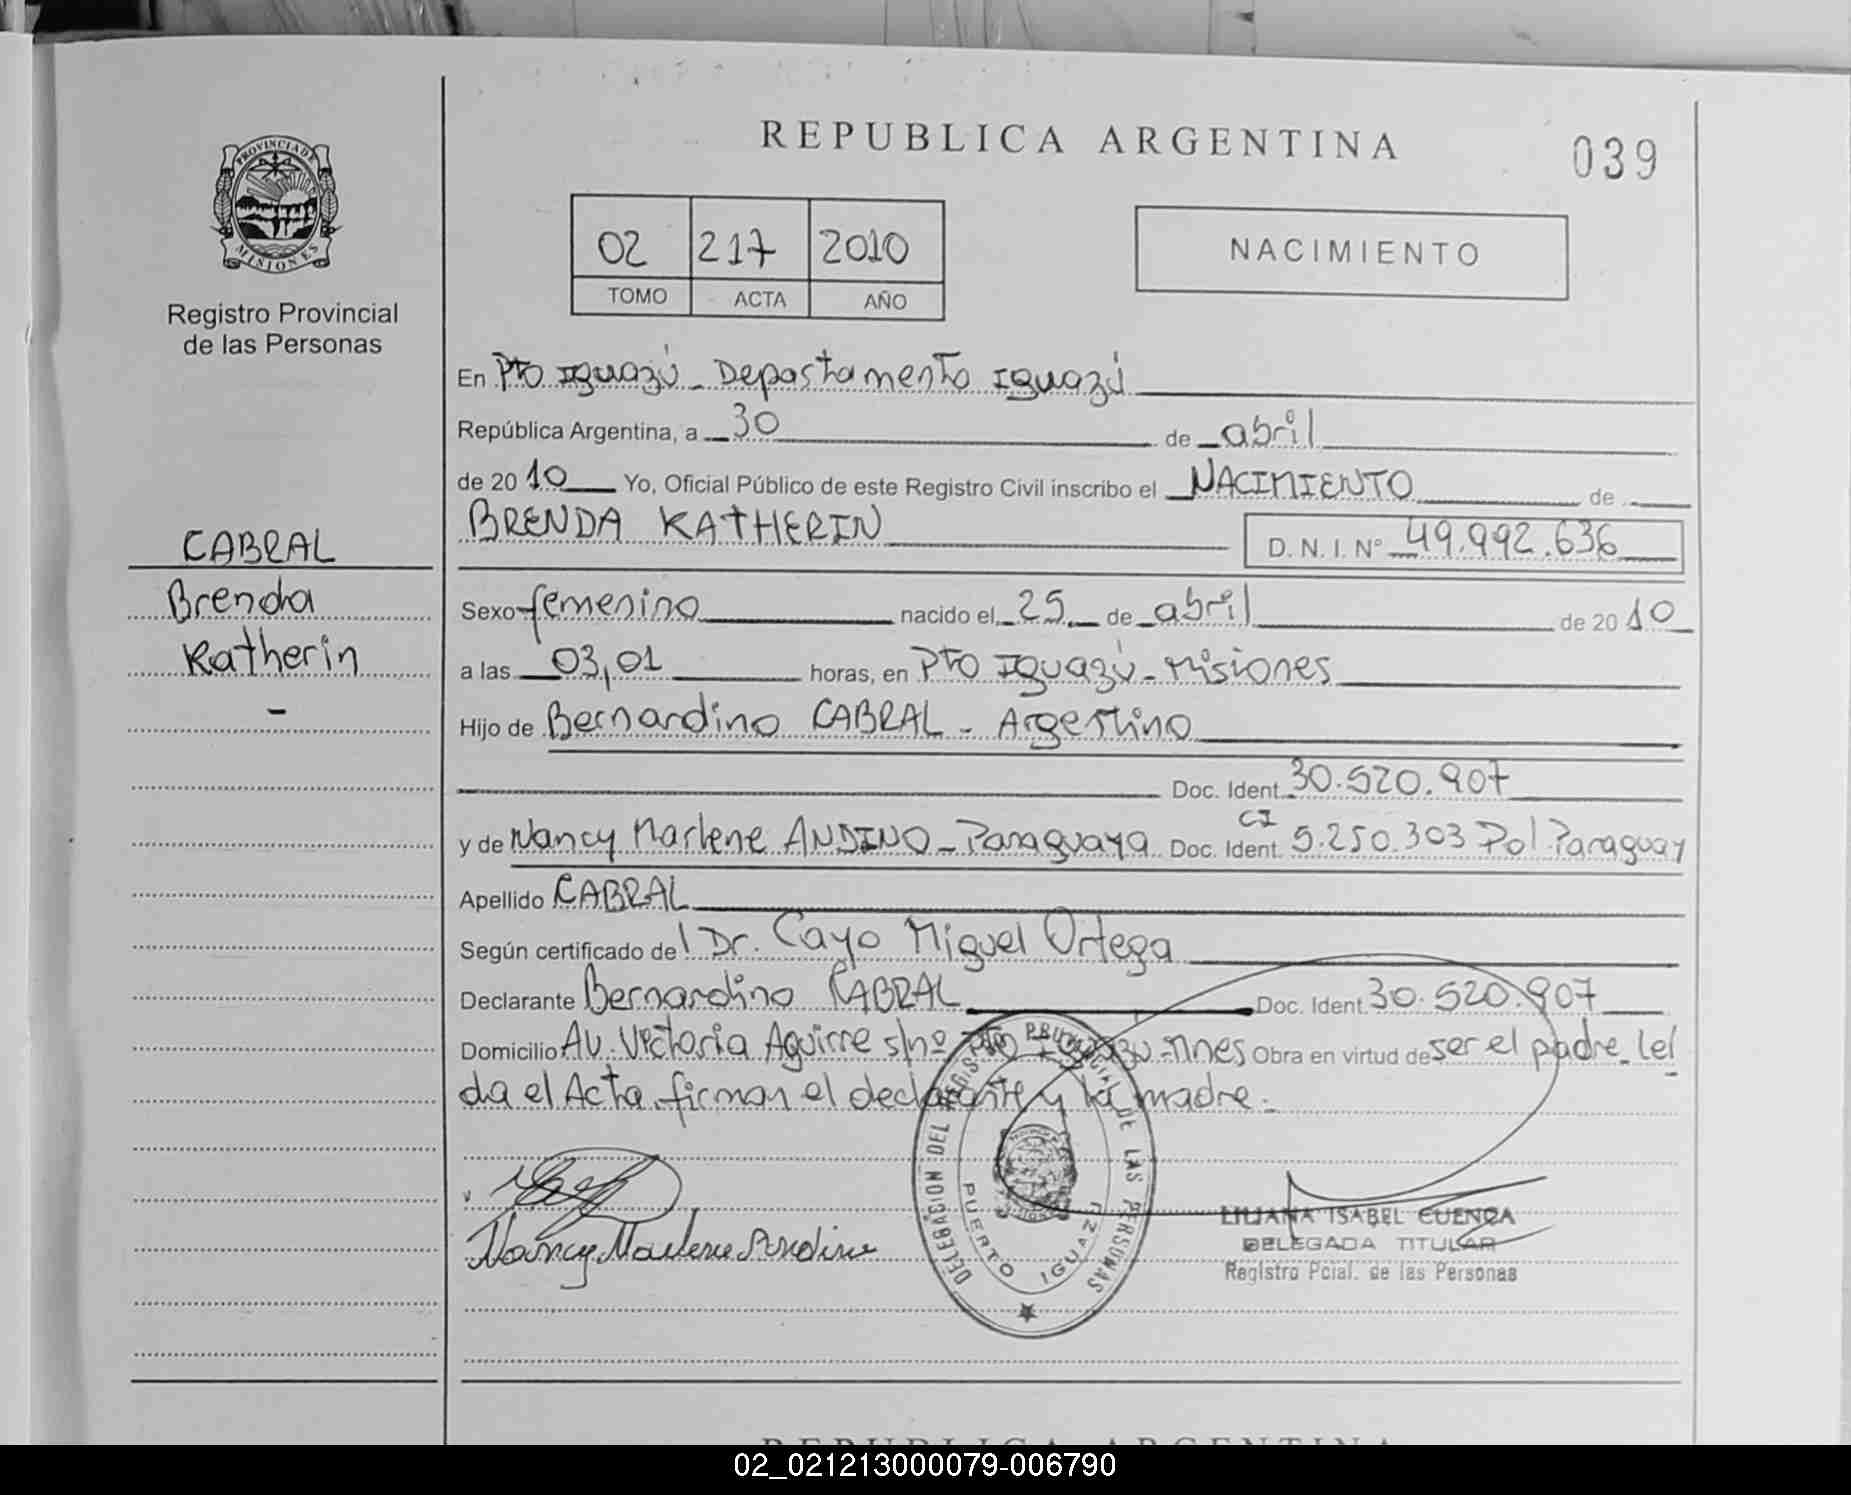 PROVINCIA DE
MISIONES
Registro Provincial
de las Personas
CABRAL
Brenda
Katherin
-
REPUBLICA ARGENTINA
039
02 217 2010
TOMO ACTA AÑO
NACIMIENTO
En Pto Iguazú - Departamento Iguazú
República Argentina, a 30 de abril
de 2010 Yo, Oficial Público de este Registro Civil inscribo el NACIMIENTO de
BRENDA KATHERIN D. N. I. N° 49.992.636
Sexo femenino nacido el 25 de abril de 2010
a las 03,01 horas, en Pto Iguazú - Misiones
Hijo de Bernardino CABRAL - Argentino
Doc. Ident. 30.520.907
y de Nancy Marlene ANDINO - Paraguaya Doc. Ident. CI 5.250.303 Pol. Paraguay
Apellido CABRAL
Según certificado del Dr. Cayo Miguel Ortega
Declarante Bernardino CABRAL Doc. Ident. 30.520.907
Domicilio Av. Victoria Aguirre s/nº Pto Iguazú - Mnes Obra en virtud de ser el padre. Leí
da el Acta, firman el declarante y la madre.-
Nancy Marlene Andino
DELEGACION DEL REGISTRO PROVINCIAL DE LAS PERSONAS
PUERTO IGUAZU
LILIANA ISABEL CUENCA
DELEGADA TITULAR
Registro Pcial. de las Personas
REPUBLICA ARGENTINA
02_021213000079-006790